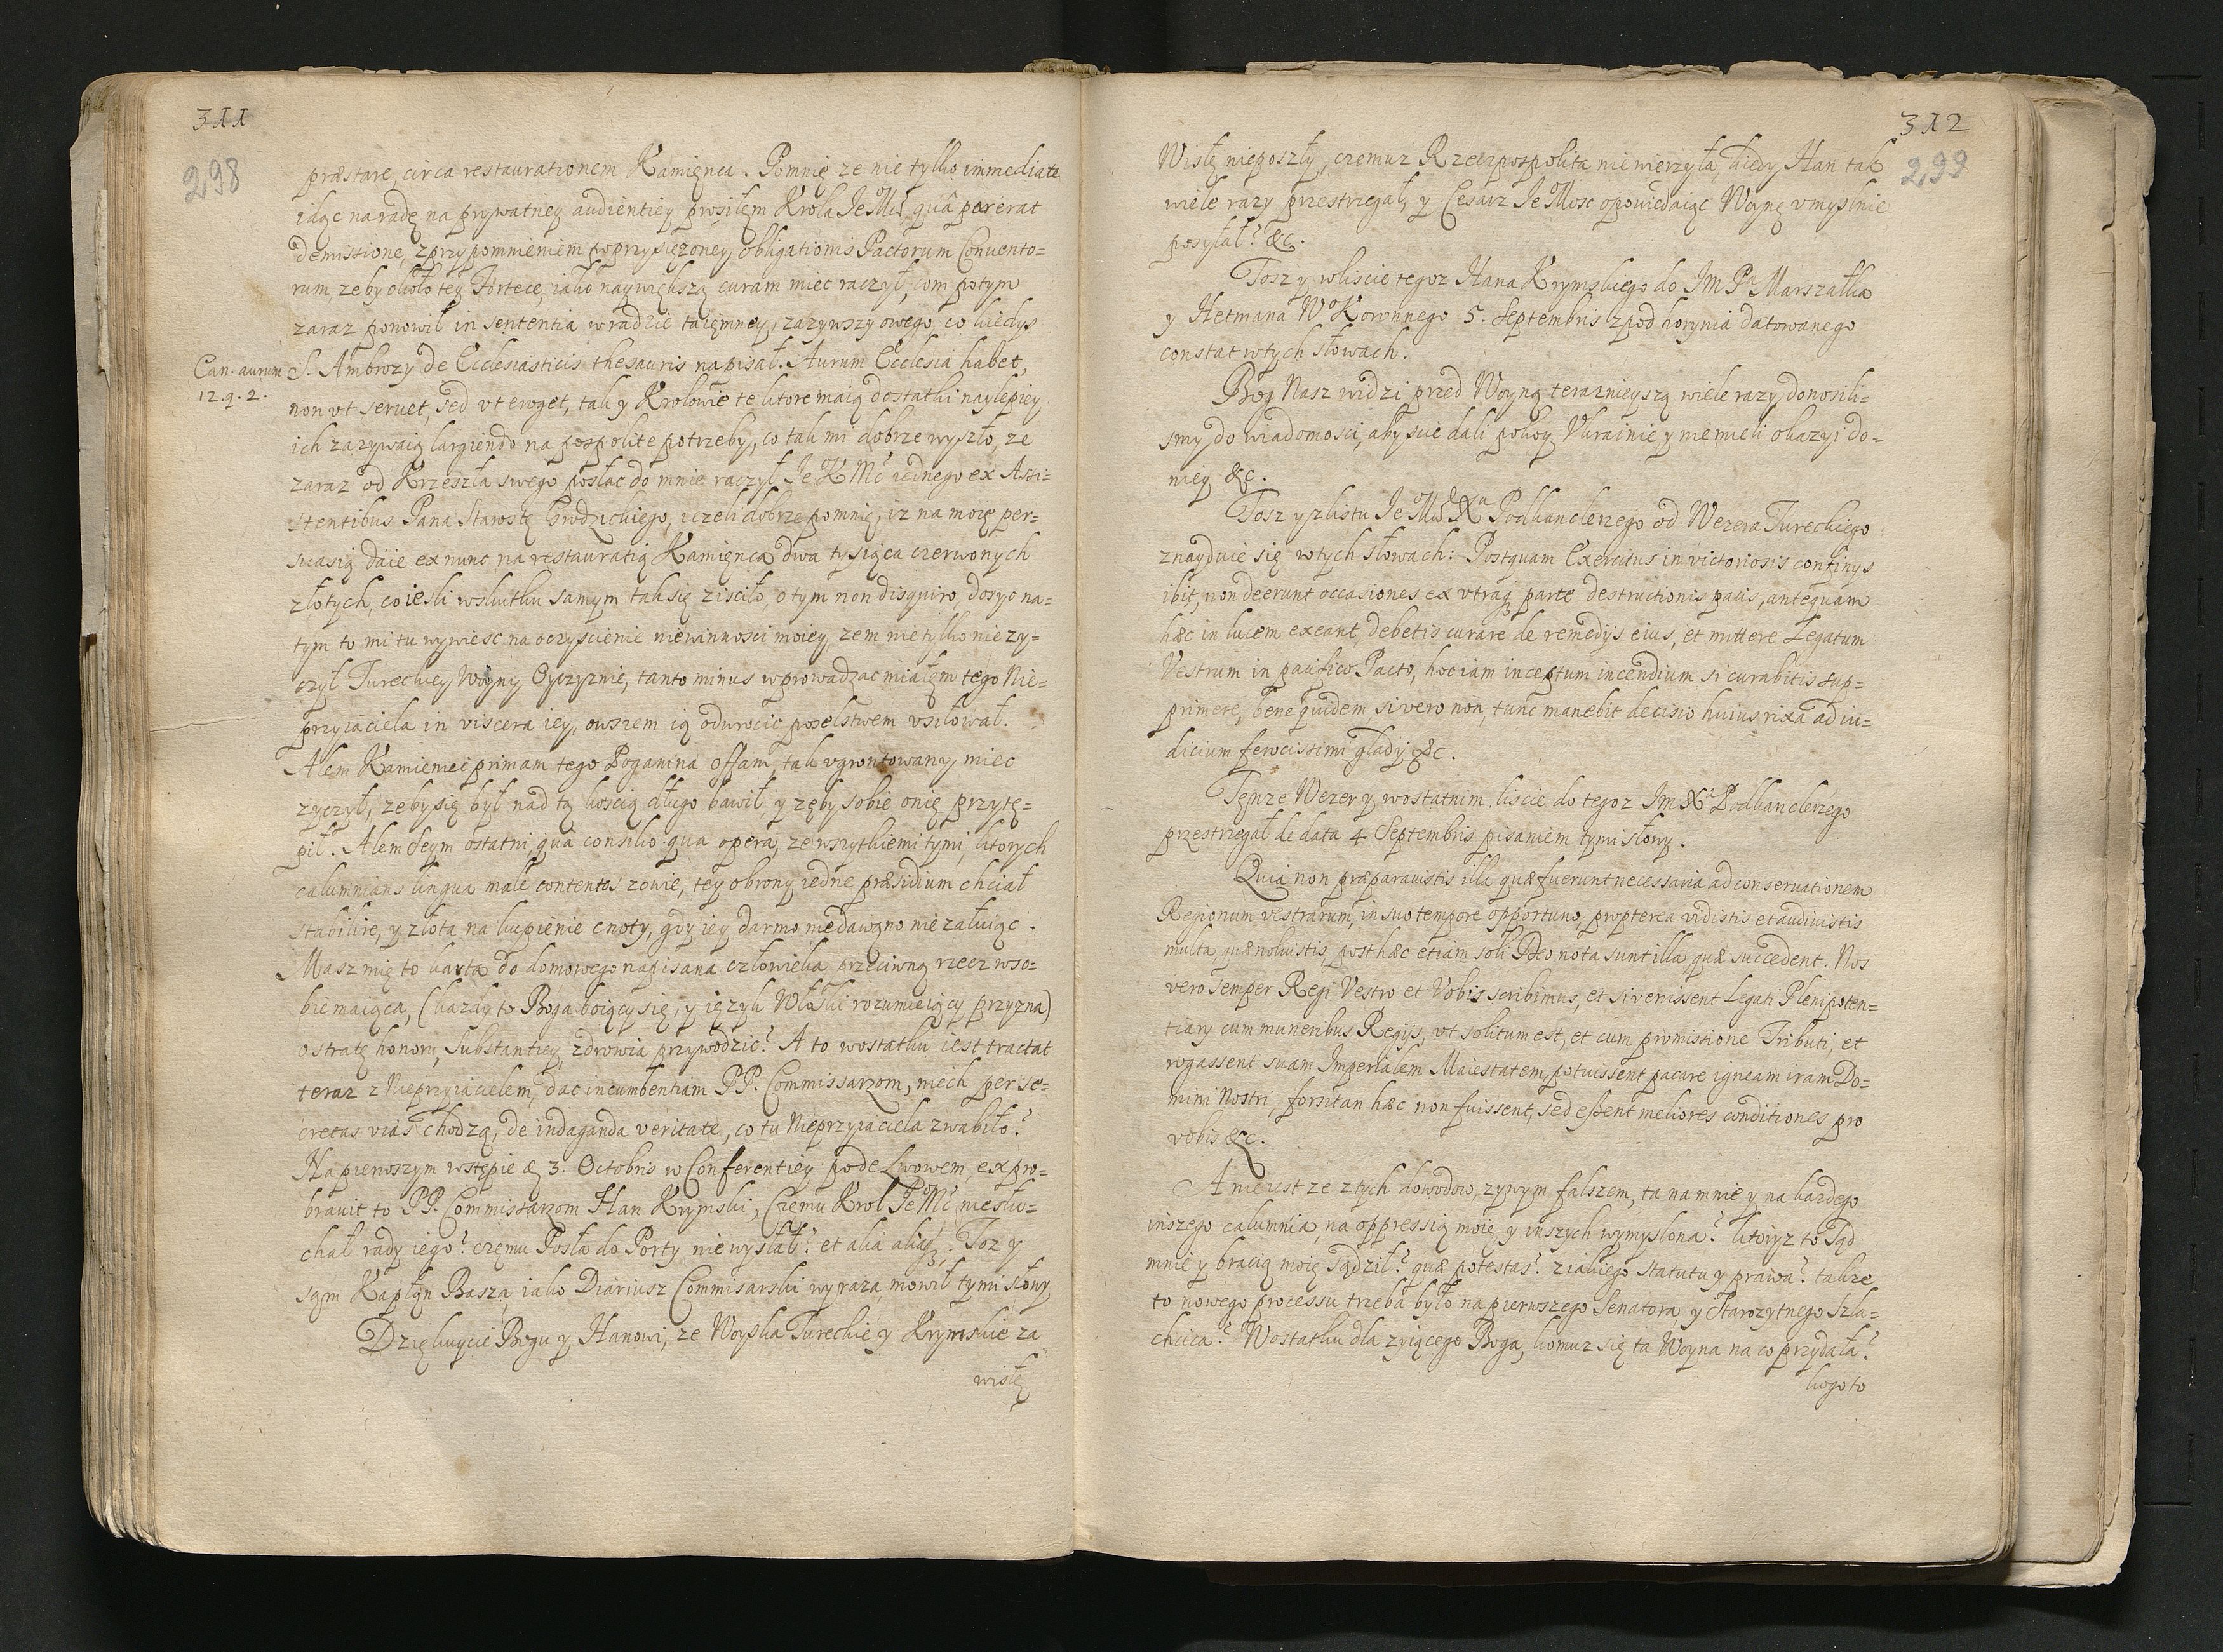 311
298
præstare, circa restaurationem Kamięnca. Pomnię ze nie tylko immediate
idąc na radę na prywatney audientiey prosiłem Krola JeMści quâ par erat
demissione, z przypomnieniem poprzysięzoney obligationis Pactorum Conuento=
rum, zeby około tey Fortece, iako naywiększą curam miec raczył, com potym
zaraz ponowił in sententia w radzie taięmney, zazywszy owego co kiedys
Can. aurum
12. q. 2.
S. Ambrozy de Ecclesiasticis thesauris napisał. Aurum Ecclesia habet,
non vt seruet, sed vt eroget, tak y Krolowie te ktore maią dostatki naylepiey
ich zazywaią largiendo na pospolite potrzeby, co tak mi dobrze wyszło, ze
zaraz od Krzesła swego posłac do mnie raczył Je K Mc iednego ex Assi=
stentibus Pana Starostę Grodzickiego, iezeli dobrze pomnię, iz na moię per=
suasią daie ex nunc na restauratią Kamięnca dwa tysiąca czerwonych
złotych, co iesli w skutku samym tak się zisciło, o tym non disquiro, dosyc na=
tym to mi tu wywiesc na oczyscienie niewinnosci moiey, zem nie tylko nie zy=
czył Tureckiey Woyny Oyczyznie, tanto minus wprowadzac miałem tego Nie=
przyiaciela in viscera iey, owszem ią odwrocic poselstwem vsiłował.
Alem Kamieniec primam tego Poganina offam, tak vgrontowany miec
zyczył, zeby się był nad tą koscią długo bawił, y zęby sobie onię przytę=
pił. Alem Seym ostatni, qua consilio qua opera, ze wszytkiemi tymi, ktorych
calumnians lingua male contentos zowie, tey obrony iedne præsidium chciał
stabilire, y złota na kupienie cnoty, gdy iey darmo niedawano nie załuiąc.
Masz mię to karta do domowego napisana człowieka przeciwną rzecz wso=
bie maiąca, (kazdy to Boga boiący się, y ięzyk Włoski rozumieiący przyzna)
o stratę honoru, substantiey, zdrowia przywodzic? A to wostatku iest tractat
teraz z Nieprzyiacielem, dac incumbentiam PP. Commissarzom, niech per se=
cretas vias chodzą, de indaganda veritate, co tu Nieprzyiaciela zwabiło?
Na pierwszym wstępie d. 3. Octobris w Conferentiey pode Lwowem, expro=
brauit to PP. Commissarzom Han Krymski, Czemu Krol JeMc niesłu=
chał rady iego? czemu Posła do Porty nie wysłał? et alia aliaq3. Toz y
sąm Kapłąn Basza, iako Diariusz Commissarski wyraza, mowił tymi słowy
Dziękuycie Bogu y Hanowi, ze Woyska Tureckie y Krymskie za
wisłę
312
299
Wisłę nieposzły, czemuz Rzeczpospolita niewierzyła, kiedy Han tak
wiele razy przestrzegał, y Cesarz JeMosc opowiedaiąc Woynę vmyslnie
posyłał? &c.
Tosz y w liscie tegoz Hana Krymskiego do JM Pa Marszałka
y Hetmana W K oronnego 5. Septembris z pod horynia datowanego
constat w tych słowach.
Bog Nasz widzi przed Woyną teraznieyszą wiele razy donosili=
smy do wiadomosci, aby scie dali pokoy Vkrainie, y niemieli okazyi do=
niey &c.
Tosz y z listu JeMści Xa Podkanclerzego od Wezera Tureckiego
znayduie się w tych słowach: Postquam Exercitus in victoriosis confinys
ibit, non deerunt occasiones ex vtraq3 parte destructionis pacis, antequam
hæc in lucem exeant, debetis curare de remedijs eius, et mittere Legatum
Vestrum in pacifico Pacto, hoc iam inceptum incendium si curabitis sup=
primere, bene quidem, si vero non, tunc manebit decisio huius rixæ ad iu=
dicium ferocissimi gladij &c.
Tęnze Wezer y wostatnim liscie do tegoz Jm Xa Podkanclerzego
przestrzegał de data 4 Septembris pisaniem tymi słowy.
Quia non præparauistis illa quæ fuerunt necessaria ad conseruationem
Regionum vestrarum, in suo tempore opportuno, propterea vidistis et audiuistis
multa quæ noluistis, post hæc etiam soli Deo nota sunt illa quæ succedent. Nos
vero semper Regi Vestro et Vobis scribimus, et si venissent Legati Plenipoten=
tiary cum muneribus Regijs, vt solitum est, et cum promissione Tributi, et
rogassent suam Imperialem Maiestatem, potuissent pacare igneam iram Do=
mini Nostri, forsitan hæc non fuissent, sed essent meliores conditiones pro
vobis &c.
A nie iest ze z tych dowodow, zywym falszem, ta na mnie y na kazdego
inszego calumnia, na oppressią moię y inszych wymyslona? ktoryz to Sąd
mnie y bracią moię sądził? quæ potestas? z iakiego statutu y prawa? takze
to nowego processu trzeba było na pierwszego Senatora y Starozytnego Szla=
chcica? Wostatku dla zyiącego Boga, komuz się ta Woyna na co przydała?
kogo to